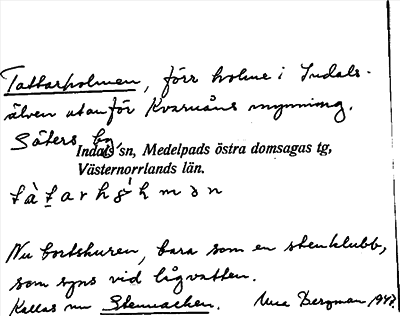 Tattarholmen, förr holme i Indals-
älven utanför Kvarnåns mynning.
Säters by
Indals sn, Medelpads östra domsagas tg,
Västernorrlands län.
Nu bortskuren, bara som en stenklubb,
som syns vid lågvatten.
Kallas nu Stennacken. Bergman 1947.